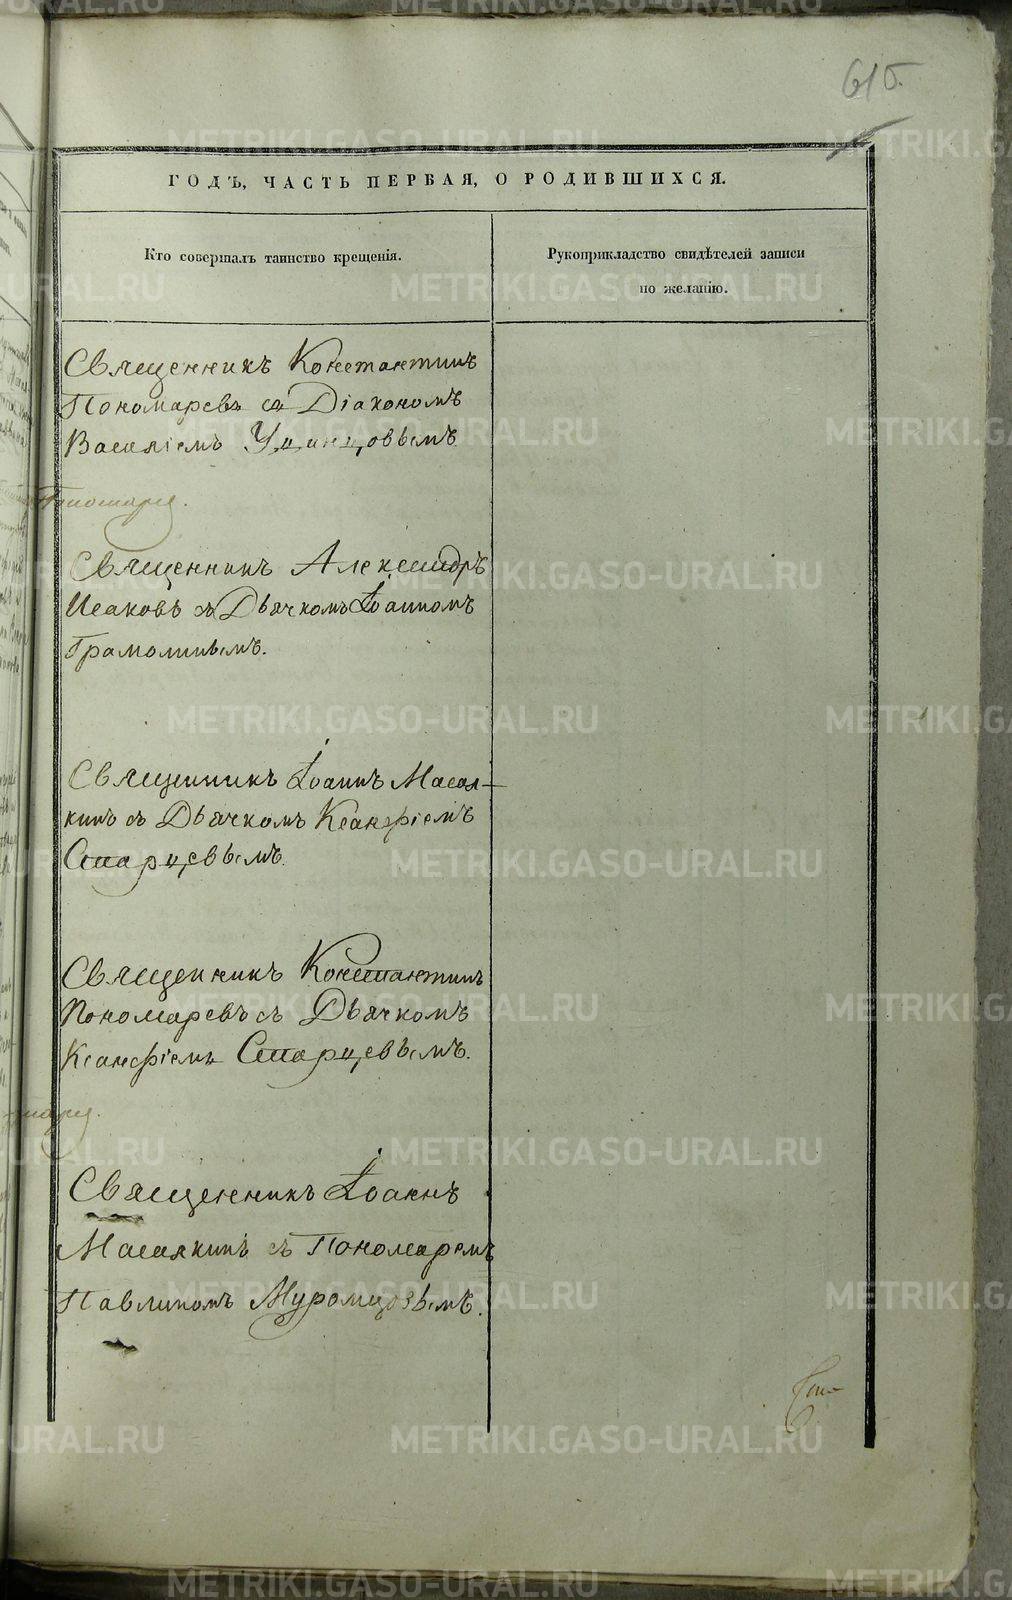 615.
ГОДЪ, ЧАСТЬ ПЕРВАЯ, О РОДИВШИХСЯ.
Кто совершалъ таинство крещенія.
Рукоприкладство свидѣтелей записи
по желанію.
Священникъ Константинъ
Пономаревъ съ Діакономъ
Василіемъ Удинцовымъ
Священникъ Александръ
Исаковъ съ Дьячкомъ Іоанномъ
Грамолинымъ.
Священникъ Іоаннъ Масля-
кинъ съ Дьячкомъ Ксанфіемъ
Старцевымъ.
Священникъ Константинъ
Пономаревъ съ Дьячкомъ
Ксанфіемъ Старцевымъ.
Священникъ Іоаннъ
съ Пономаремъ
Павлиномъ Муромцовымъ.
METRIKI.GASO-URAL.RU